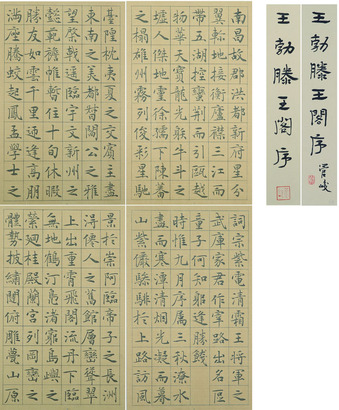 王勃滕王閣序 管峻
王勃滕王閣序
南昌故郡洪都新府星分
翼軫地接衡廬襟三江而
帶五湖控蠻荊而引甌越
物華天寶龍光射牛斗之
墟人傑地靈徐孺下陳蕃
之榻雄州霧列俊彩星馳
臺隍枕夷夏之交賓主盡
東南之美都督閻公之雅
望棨戟遙臨宇文新州之
懿範襜帷暫住十旬休暇
勝友如雲千里逢迎高朋
滿座騰蛟起鳳孟學士之
詞宗紫電清霜王將軍之
武庫家君作宰路出名區
童子何知躬逢勝餞
時惟九月序屬三秋潦水
盡而寒潭清煙光凝而暮
山紫儼驂騑於上路訪風
景於崇阿臨帝子之長洲
得僊人之舊館層巒聳翠
上出重霄飛閣流丹下臨
無地鶴汀鳧渚窮島嶼之
縈迴桂殿蘭宮列岡巒之
體勢披繡闥俯雕甍山原